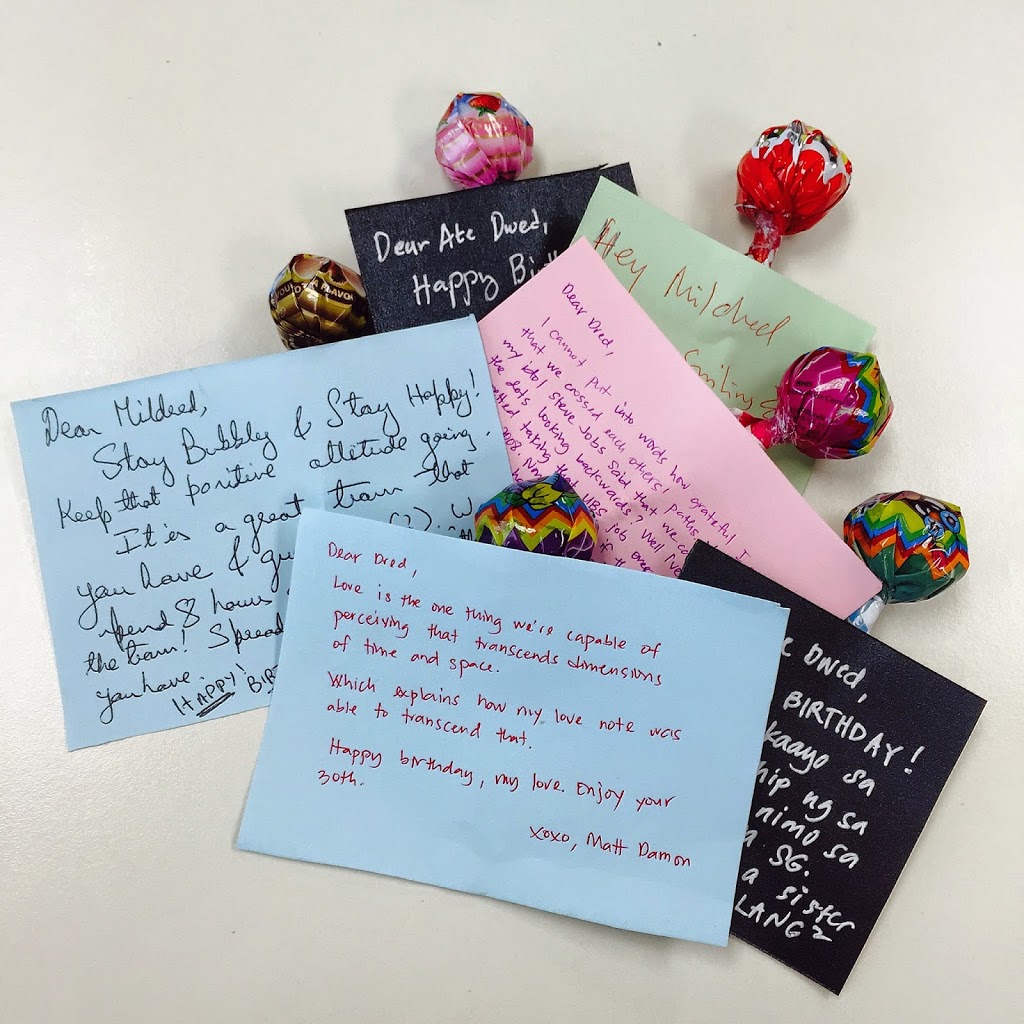 Dear Ate Dwed,
Happy Birth
Hey Mildred
Smiling
Dear Dred,
I cannot put into words how grateful I
that we crossed each others' paths
my idol Steve Jobs said that we ca
the dots looking backwards? Well I've
taking the UBS job over
Dear Mildred,
Stay Bubbly & Stay Happy!
Keep that positive attitude going.
It's a great team that
you have &
spend 8 hours
the team! Spread
you have.
HAPPY BIR
Dear Dred,
Love is the one thing we're capable of
perceiving that transcends dimensions
of time and space.
Which explains how my love note was
able to transcend that.
Happy birthday, my love. Enjoy your
30th.
xoxo, Matt Damon
Dwed,
BIRTHDAY!
kaayo sa
hip ng sa
nimo sa
a SG.
a sister
LANG
FLAVOU